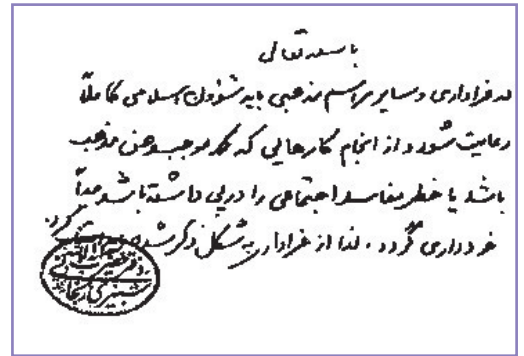 باسمه تعالی
در عزاداری و سایر مراسم مذهبی باید شئون اسلامی کاملاً
رعایت شود و از انجام کارهایی که موجب وهن مذهب
باشد یا خطر مفاسد اجتماعی را در پی داشته باشد جداً
خودداری گردد. لذا از عزاداری به شکل ذکر شده